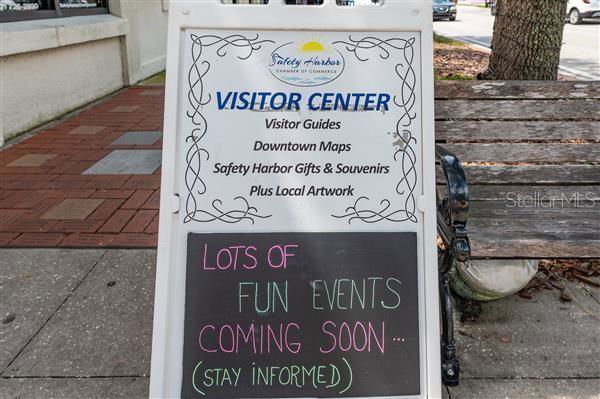 Safety Harbor
CHAMBER OF COMMERCE
VISITOR CENTER
Visitor Guides
Downtown Maps
Safety Harbor Gifts & Souvenirs
Plus Local Artwork
LOTS OF
FUN EVENTS
COMING SOON...
(STAY INFORMED)
StellarMLS